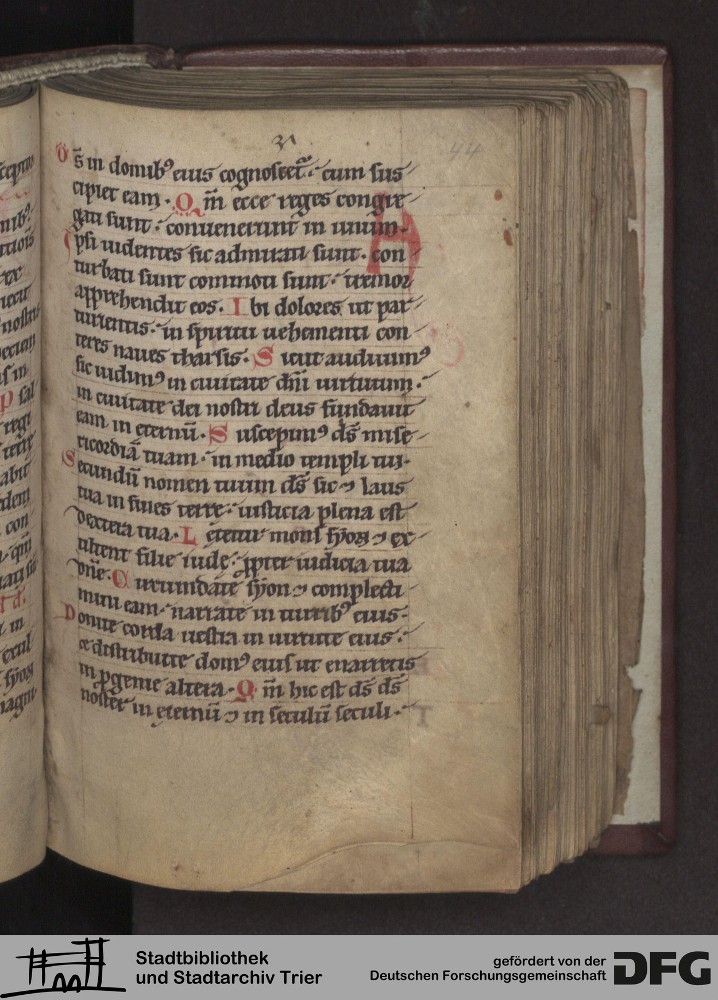 44
D s̄ in domib⁹ eius cognoscet᷑· cum sus
cipiet eam· Q m̄ ecce reges congre
gati sunt· conuenerunt in unum·
I psi uidentes sic admirati sunt· con
turbati sunt commoti sunt· tremor
apprehendit eos· I bi dolores ut par
turientis· in spiritu uehementi con
teres naues tharsis· S icut audiuim⁹
sic uidim⁹ in ciuitate dn̄i uirtutum·
in ciuitate dei nostri deus fundauit
eam in eternū· S uscepim⁹ ds̄ mise
ricordiā tuam· in medio templi tui·
S ecundū nomen tuum ds̄ sic ⁊ laus
tua in fines terre· iusticia plena est
dextera tua· L etetur mons syon ⁊ ex
ultent filie iude· ꝓpter iudicia tua
dn̄e· C ircundate syon ⁊ complecti
mini eam· narrate in turrib⁹ eius·
P onite corda uestra in uirtute eius·
et distribuite dom⁹ eius ut enarretis
in ꝓgenie altera· Q m̄ hic est ds̄ ds̄
noster in eternū ⁊ in seculū seculi·
Stadtbibliothek
und Stadtarchiv Trier
gefördert von der
Deutschen Forschungsgemeinschaft
DFG